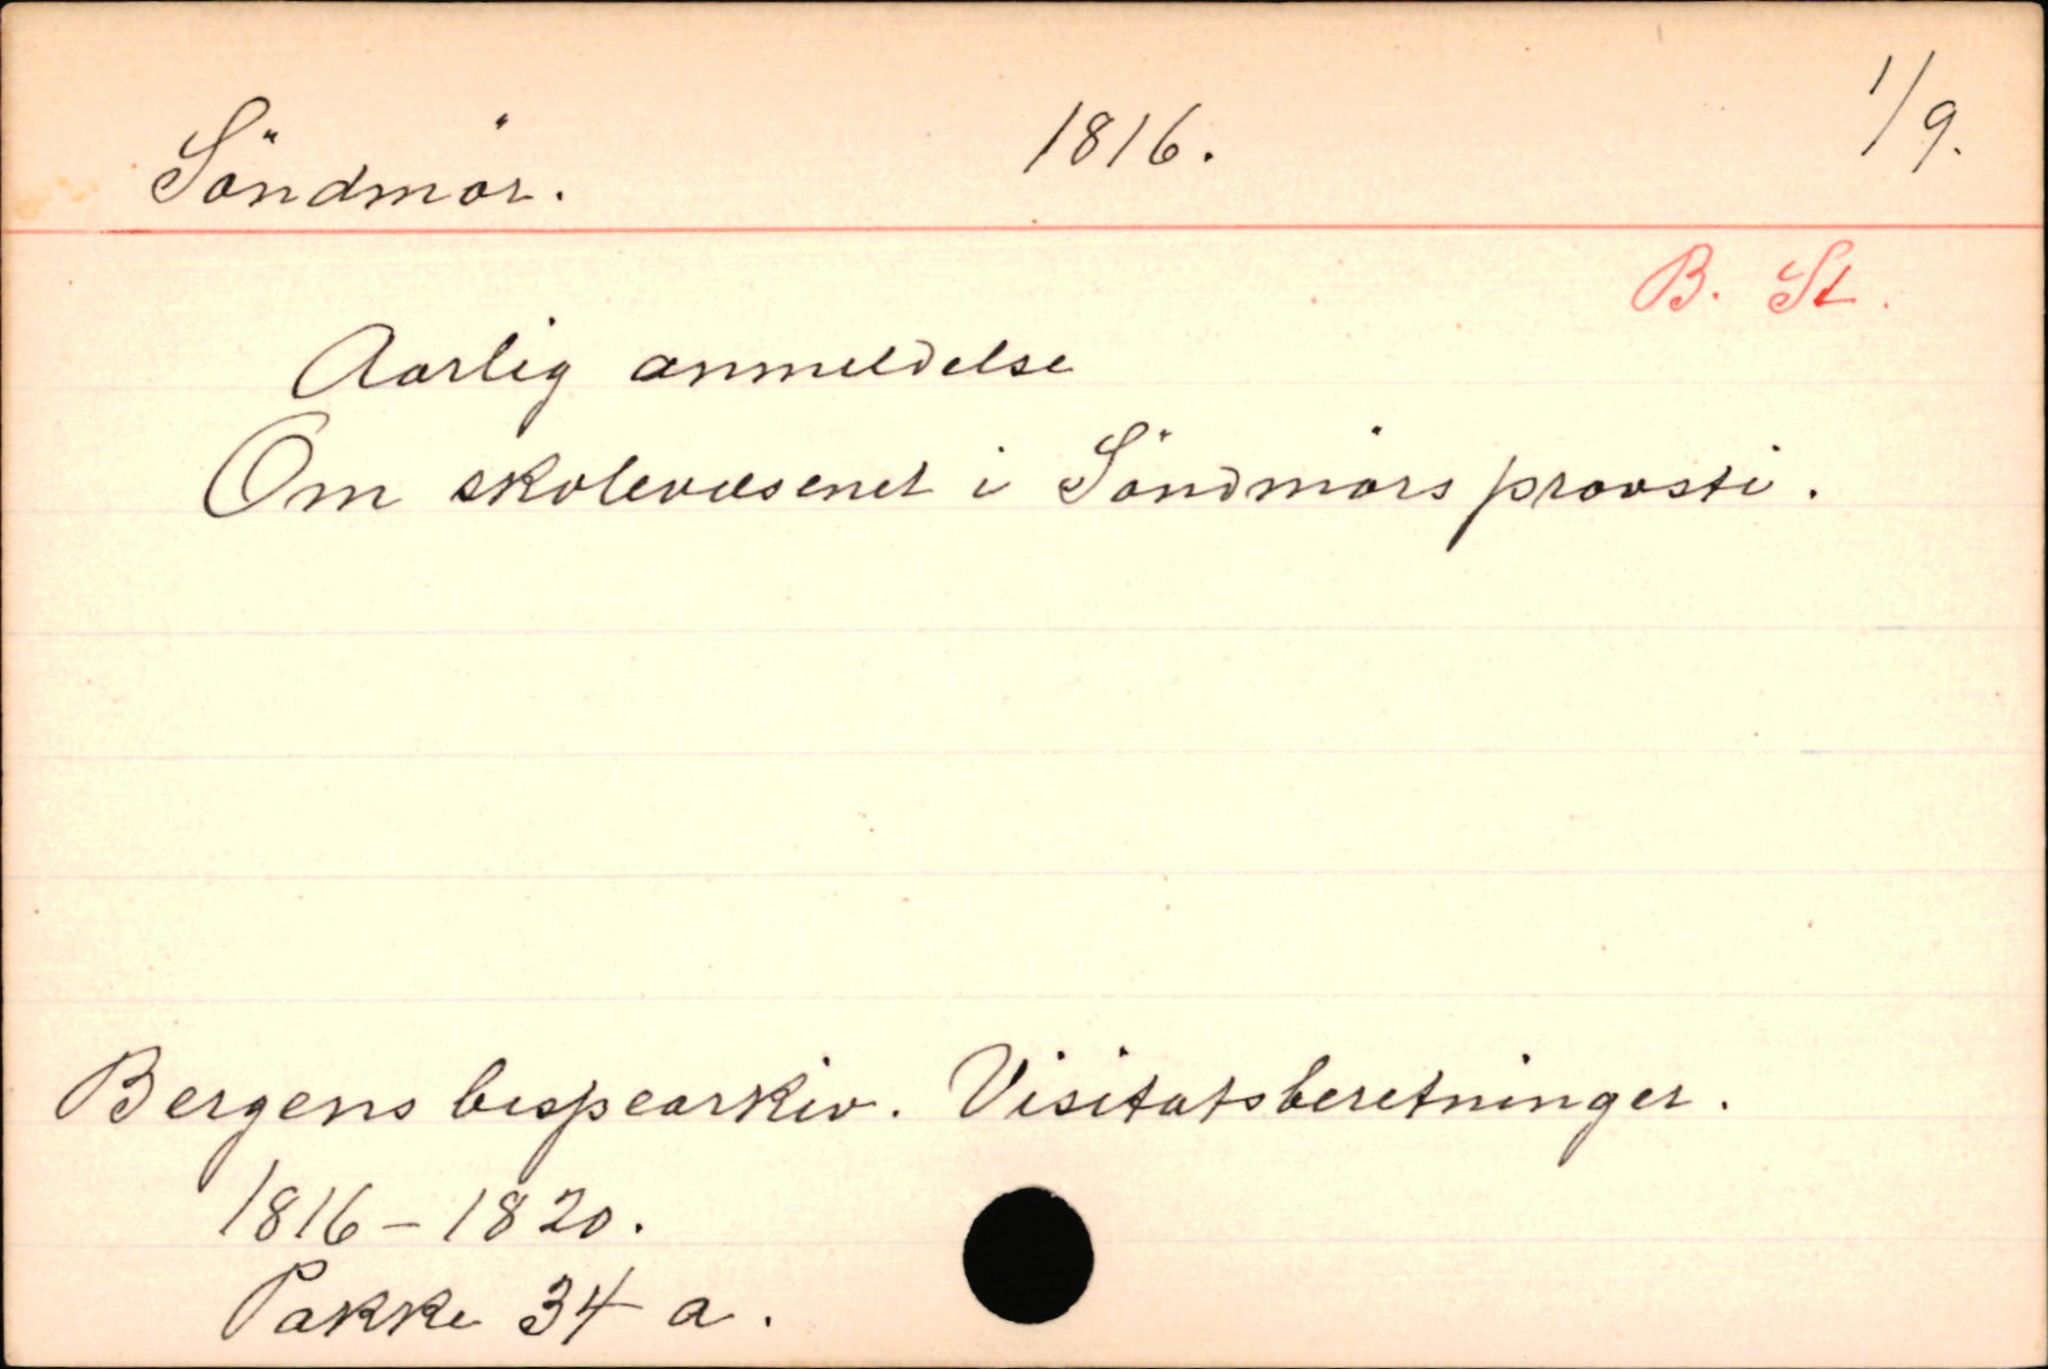 Söndmör. 1816. 1/9.
B. St.
Aarlig anmeldelse
Om skolevæsenet i Söndmörs provsti.
Bergens bispearkiv. Visitatsberetninger.
1816-1820.
Pakke 34 a.